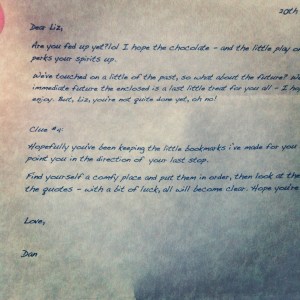 20th
Dear Liz,
Are you fed up yet?lol I hope the chocolate - and the little play on
perks your spirits up.
We've touched on a little of the past, so what about the future? We
immediate future the enclosed is a last little treat for you all - I hop
enjoy. But, Liz, you're not quite done yet, oh no!
Clue #4:
Hopefully you've been keeping the little bookmarks i've made for you
point you in the direction of your last stop.
Find yourself a comfy place and put them in order, then look at the
the quotes - with a bit of luck, all will become clear. Hope you're
Love,
Dan